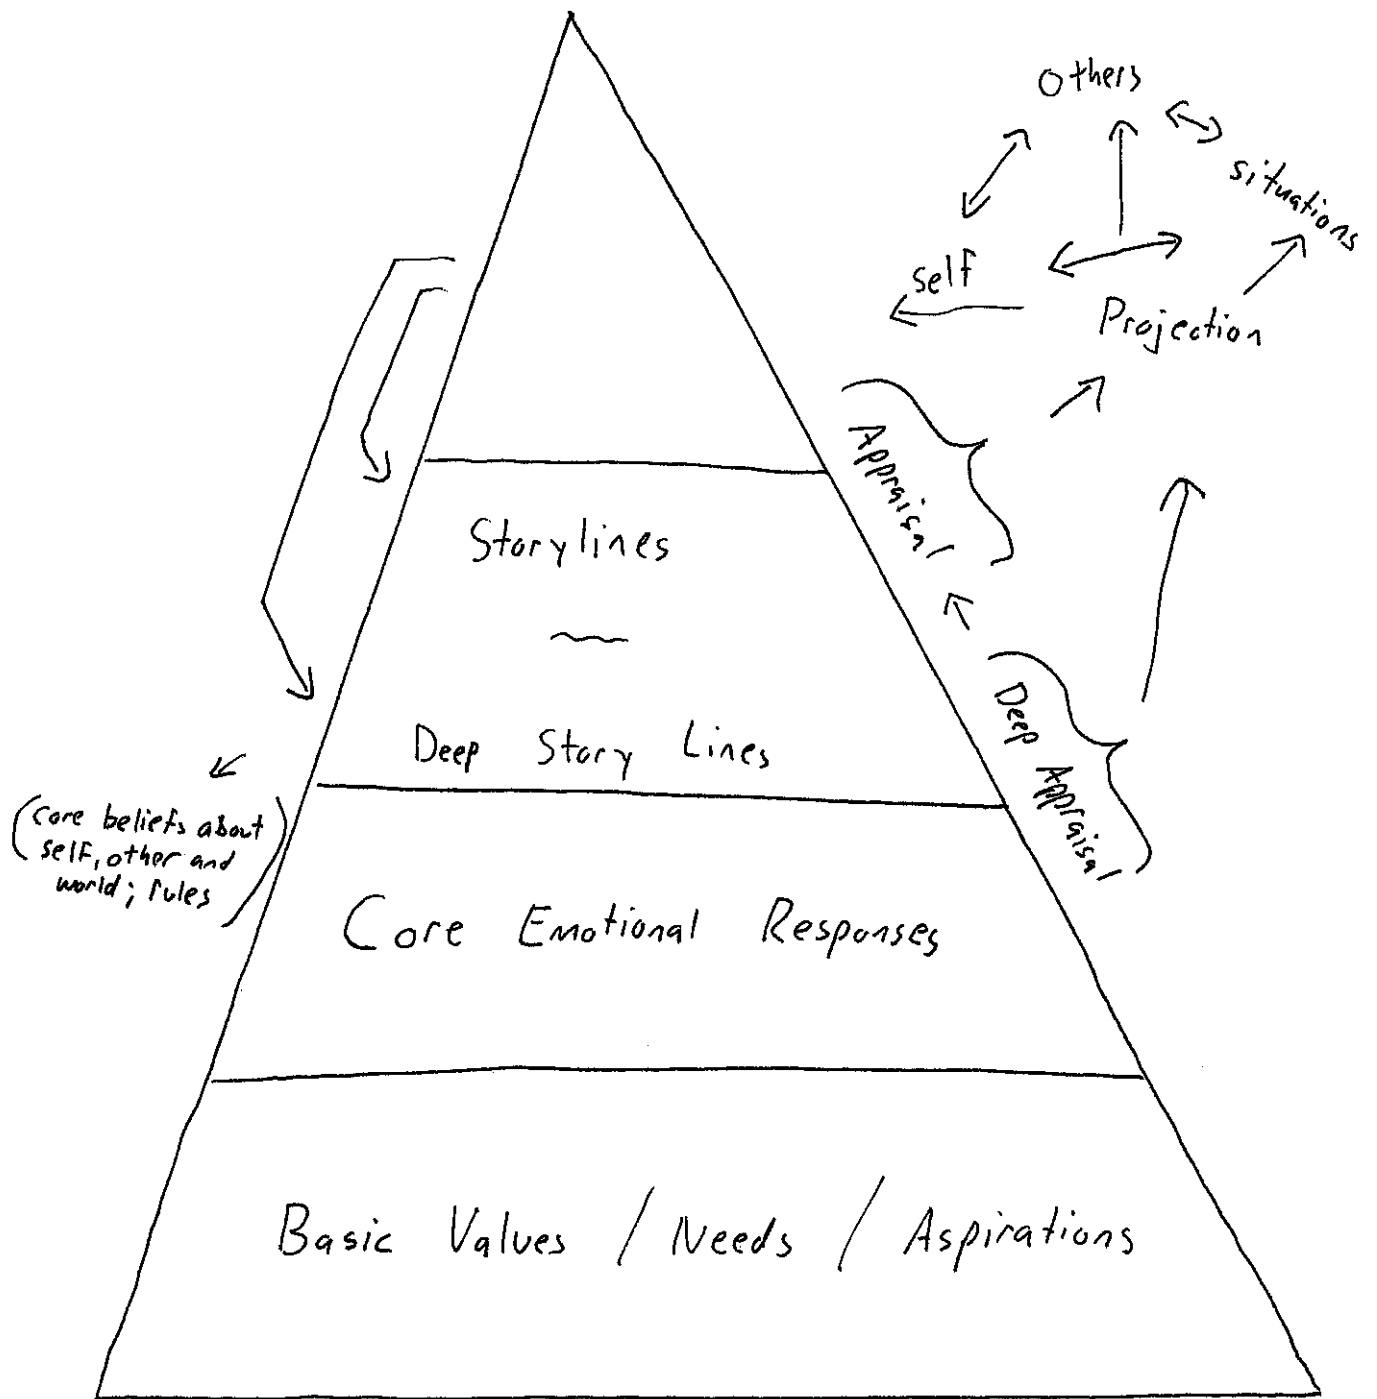 Others
situations
self
Projection
Appraisal
Storylines
Deep Appraisal
Deep Story Lines
(core beliefs about
self, other and
world; rules)
Core Emotional Responses
Basic Values / Needs / Aspirations